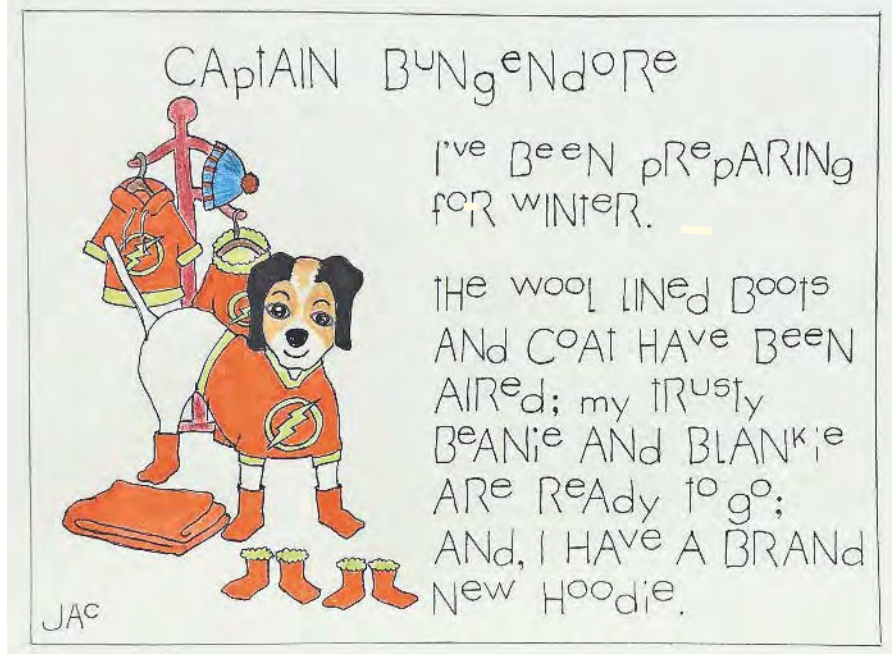 CAptAIN BuNgeNdoRe
I've BeeN pRepARINg
foR wINteR.
tHe wool lINed Boots
ANd CoAt HAve BeeN
AIRed; my tRusty
BeANie ANd BlANkie
ARe ReAdy to go;
ANd, I HAve A BRANd
New Hoodie.
JAC